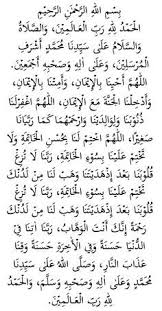 بِسْمِ اللَّهِ الرَّحْمَنِ الرَّحِيْمِ
الْحَمْدُ لِلَّهِ رَبِّ الْعَالَمِيْنَ، وَالصَّلَاةُ
وَالسَّلَامُ عَلَى سَيِّدِنَا مُحَمَّدٍ أَشْرَفِ
الْمُرْسَلِيْنَ، وَعَلَى آلِهِ وَصَحْبِهِ أَجْمَعِيْنَ.
اللَّهُمَّ أَحْيِنَا بِالْإِيْمَانِ، وَأَمِتْنَا بِالْإِيْمَانِ،
وَأَدْخِلْنَا الْجَنَّةَ مَعَ الْإِيْمَانِ، اللَّهُمَّ اغْفِرْلَنَا
ذُنُوْبَنَا وَلِوَالِدِيْنَا وَارْحَمْهُمَا كَمَا رَبَّيَانَا
صِغَارًا، اللَّهُمَّ اخْتِمْ لَنَا بِحُسْنِ الْخَاتِمَةِ وَلَا
تَخْتِمْ عَلَيْنَا بِسُوْءِ الْخَاتِمَةِ، رَبَّنَا لَا تُزِغْ
قُلُوْبَنَا بَعْدَ إِذْهَدَيْتَنَا وَهَبْ لَنَا مِنْ لَدُنْكَ
رَبَّنَا، اللَّهُمَّ اخْتِمْ لَنَا بِحُسْنِ الْخَاتِمَةِ وَلَا
تَخْتِمْ عَلَيْنَا بِسُوْءِ الْخَاتِمَةِ، رَبَّنَا لَا تُزِغْ
قُلُوْبَنَا بَعْدَ إِذْهَدَيْتَنَا وَهَبْ لَنَا مِنْ لَدُنْكَ
رَحْمَةً إِنَّكَ أَنْتَ الْوَهَّابُ، رَبَّنَا آتِنَا فِي
الدُّنْيَا حَسَنَةً وَفِي الْآخِرَةِ حَسَنَةً وَقِنَا
عَذَابَ النَّارِ، وَصَلَّى اللَّهُ عَلَى سَيِّدِنَا
مُحَمَّدٍ وَعَلَى آلِهِ وَصَحْبِهِ وَسَلَّمَ، وَالْحَمْدُ
لِلَّهِ رَبِّ الْعَالَمِيْنَ.